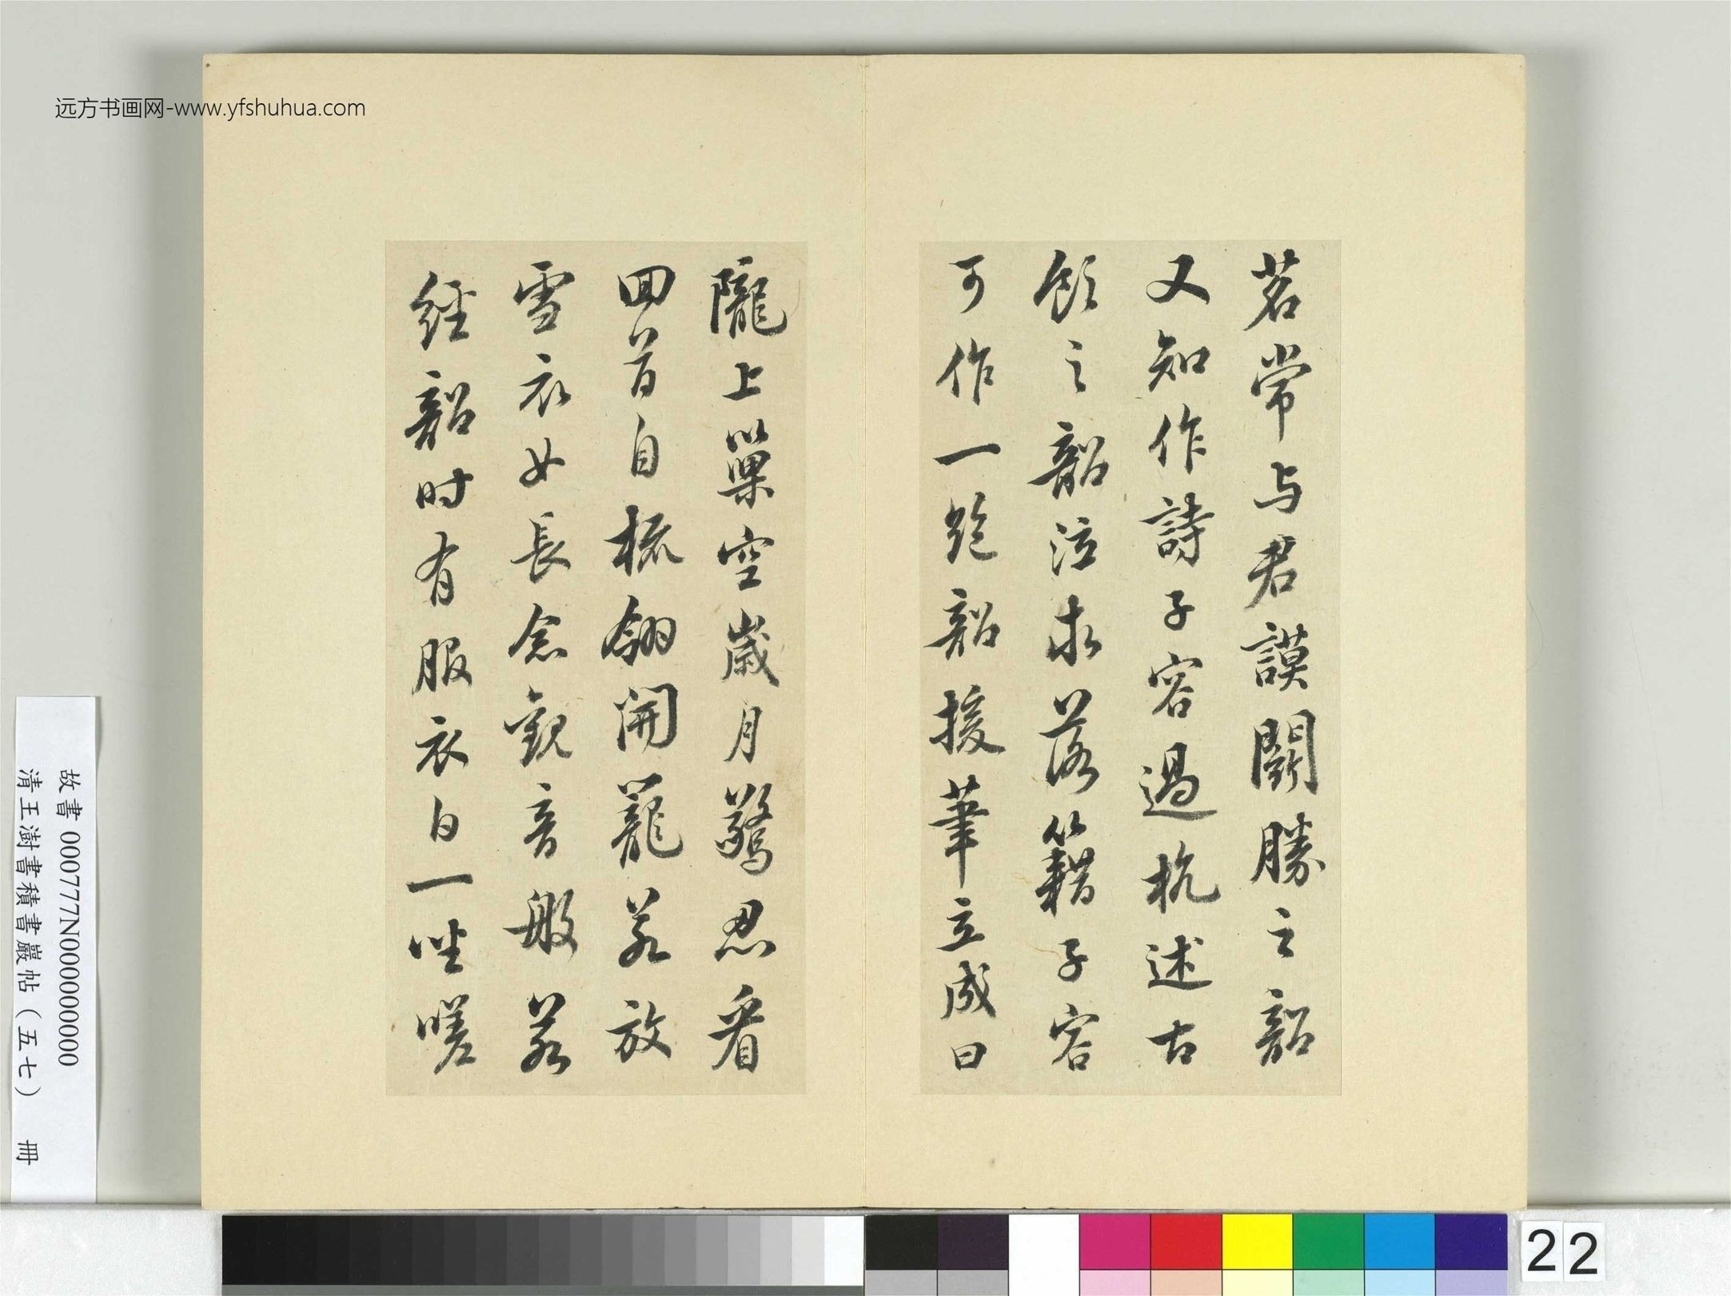 远方书画网-www.yfshuhua.com
茗常与君謨鬪勝之韶
又知作詩子容過杭述古
飲之韶泣求落籍子容
可作一絶韶援筆立成曰
隴上巢空歲月驚忍看
回首自梳翎開籠若放
雪衣女長念觀音般若
經韶时有服衣白一坐嗟
故書 000777N000000000
清王澍書積書巖帖（五七） 冊
22